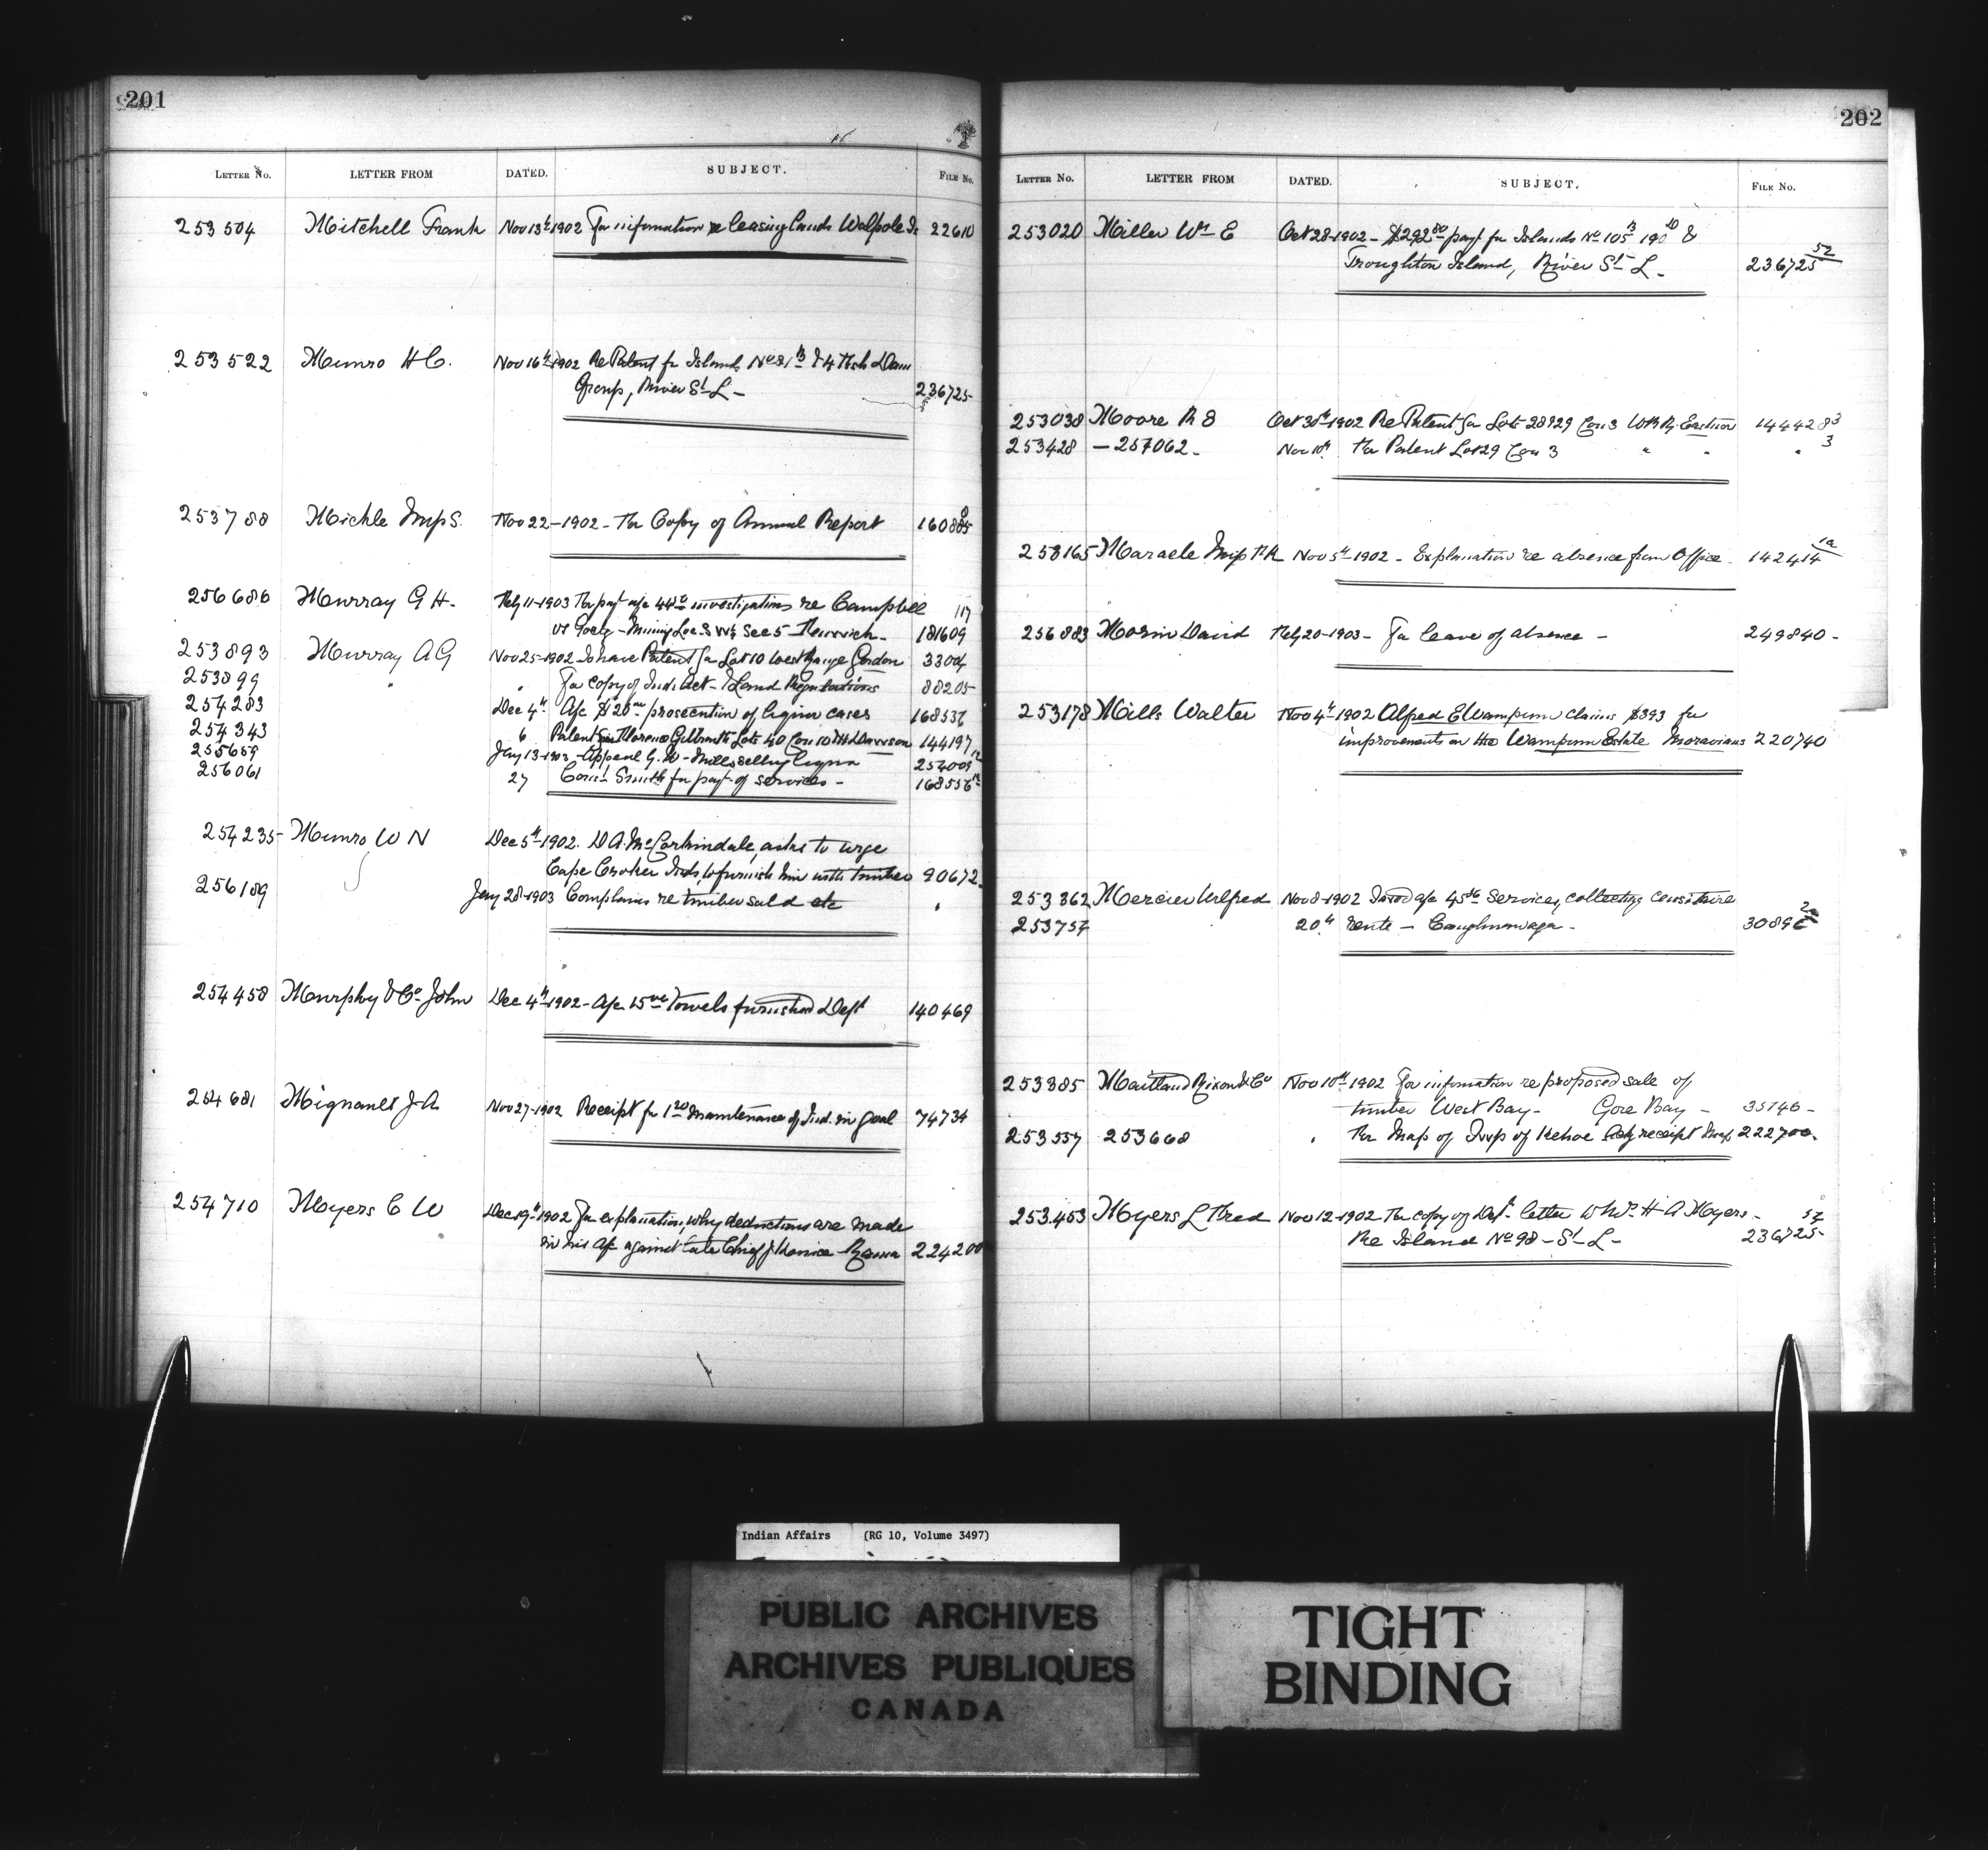 201
LETTER No. LETTER FROM DATED. SUBJECT. FILE No.
253504 Mitchell Frank Nov 13th 1902 For information re leasing lands Walpole Is 22610
253522 Munro H C. Nov 16th 1902 Re Patent for Islands No 81 & 4 Fish Dam
Group, River St L - 236725
253788 Michle Insp S. Nov 22 - 1902 - For Copy of Annual Report
256686 Murray G H. Feby 11-1903 For payt a/c investigations re Campbell
Mining Loc. S W¼ Sec 5 181609
253893 Murray A G Nov 25-1902 To have Patent for Lot 10 West Range Gordon 3304
253899 " " For copy of Ind. Act - Land Regulations 88205
254283 Dec 4th A/c $20 prosecution of liquor cases 168536
254343 6 Patent Galbraith Lots 40 Con 10 Dawson 144197
255659 Jany 13-1903 - Appeal G. W. Mills selling liquor
256061 27 Smith for payt of services -
254235 Munro W N Dec 5th 1902. D A. McCorkindale, asks to urge
Cape Croker Inds, to furnish him with timber 90672
256189 Jany 28-1903 Complains re timber sold etc "
254458 Murphy & Co John Dec 4th 1902 - A/c 15 Towels furnished Dept 140469
254681 Mignault J. A. Nov 27-1902 Receipt for 1 20 maintenance of Ind. in goal 74734
254710 Moyers C W Dec 19th 1902 For explanation, why deductions are made
in his A/c against late Chief Rama 224200
202
LETTER No. LETTER FROM DATED. SUBJECT. FILE No.
253020 Miller Wm E Oct 28-1902 - $292 80 payt for Islands No 105 190 &
Troughton Island, River St L - 236725 52
253038 Moore R S Oct 30th 1902 Re Patent for Lots 28 & 29 Con 3 Eastnor
253428 - 257062 - Nov 10th For Patent Lot 29 Con 3 " " " 3
253165 Maracle Nov 5th 1902 - Explanation re absence from Office - 142414
256883 Morin David Feby 20-1903 - For leave of absence - 249840 -
253178 Mills Walter Nov 4th 1902 Alfred E Wampum claims $393 for
improvements on the Wampum Estate Moravians 220740
253362 Mercier Wilfred Nov 8-1902 a/c services, collecting censitaire
253757 20th rente - Caughnawaga -
253385 Maitland Rixon & Co Nov 10th 1902 For information re proposed sale of
timber West Bay - Gore Bay - 35146 -
253557 253668 " For Map of Twp of Kehoe receipt Map 222700
253.453 Myers L Fred Nov 12-1902 For copy of Dept. letter to H A Myers -
Re Island No 98 - St L - 236725
Indian Affairs (RG 10, Volume 3497)
PUBLIC ARCHIVES
ARCHIVES PUBLIQUES
CANADA
TIGHT
BINDING